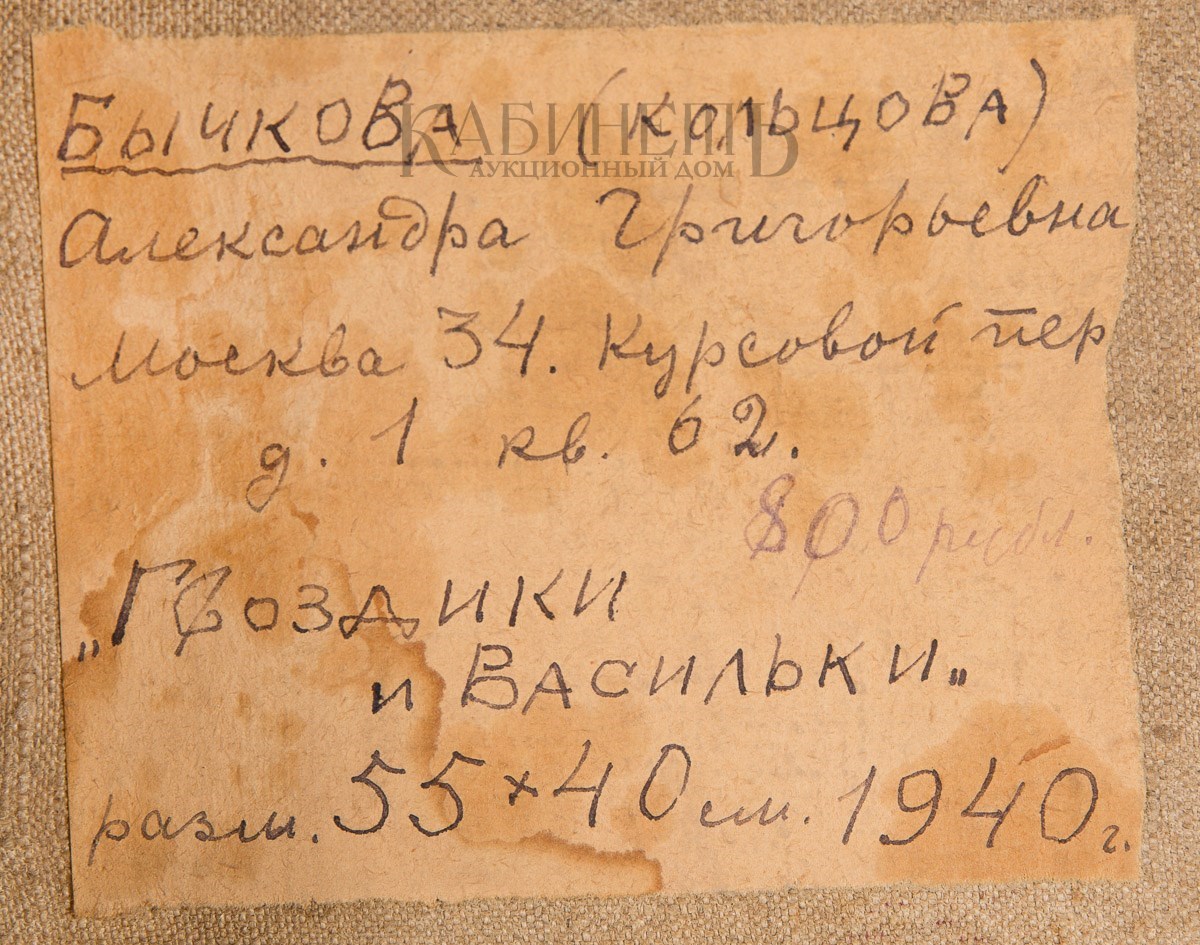 БЫЧКОВА (КОЛЬЦОВА)
КАБИНЕТЪ
АУКЦИОННЫЙ ДОМ
Александра Григорьевна
Москва 34. Курсовой пер
д. 1 кв. 62.
800 рубл.
„ГВОЗДИКИ
и ВАСИЛЬКИ„
разм. 55×40 см. 1940 г.